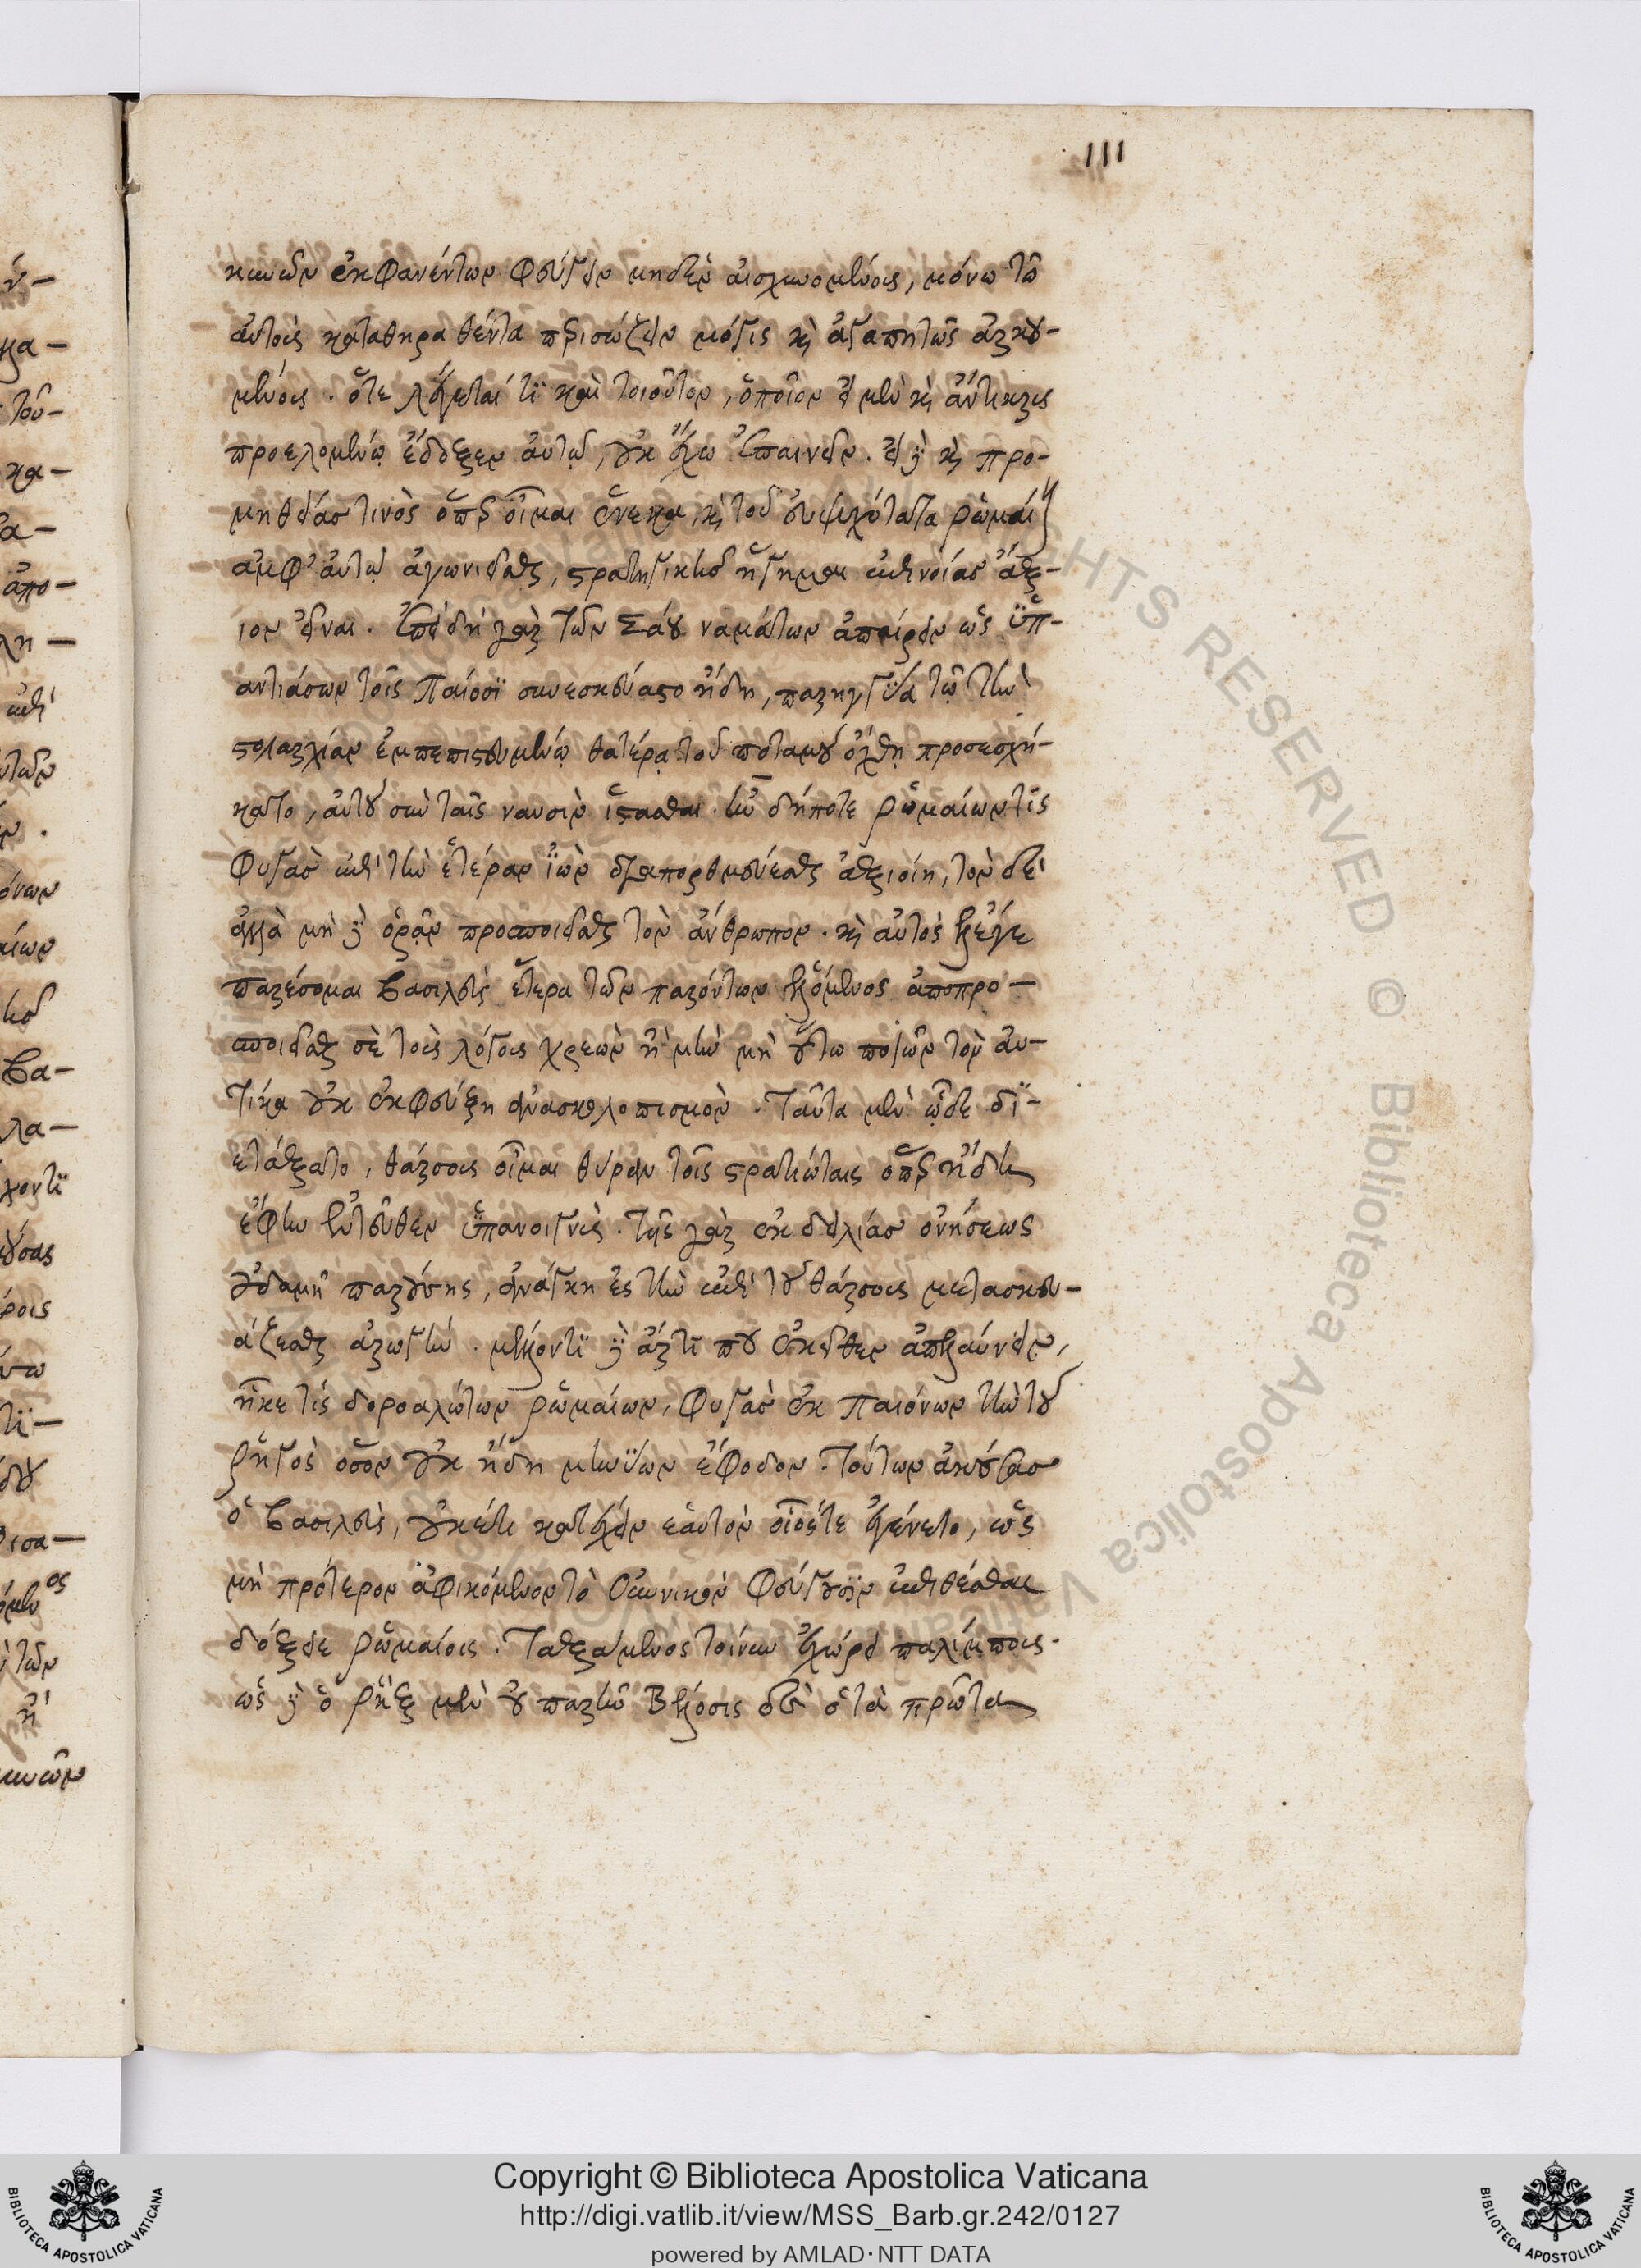 111
κυνῶν ἐκφανέντων φεύγειν μηδὲν αἰσχυνομένοις, μόνω τῶ
αὐτοὺς καταθηραθέντα περισώζειν μόγις καὶ ἀγαπητῶς ἀρκου-
μένοις. ὅτε λέγεταί τι καὶ τοιοῦτον, ὁποῖον εἰ μὲν καὶ ἄντικρυς
προελομένῳ ἔδοξεν αὐτῷ, οὐκ ἔχω ἐπαινεῖν. εἰ δὲ καὶ προ-
μηθείας τινὸς ὅπερ οἶμαι ἕνεκα, καὶ τοῦ εὐψυχότατα ῥωμαί
ἀμφ' αὐτῷ ἀγωνιεῖσθαι, στρατηγικῆς ἥγημαι ἐπινοίας ἄξ-
ιον εἶναι. ἐπειδὴ γὰρ τῶν Σάου ναμάτων ἀπαίρειν ὡς ὑπ-
αντιάσων τοῖς Παίοσι συνεσκεύαστο ἤδη, παρηγγύα τῷ τὴν
στολαρχίαν ἐμπεπιστευμένῳ θατέρᾳ τοῦ ποταμοῦ ὄχθῃ προσεσχή-
κατο, αὐτοῦ σὺν ταῖς ναυσὶν ἵστασθαι. ἢν δήποτε ῥωμαίων τις
φυγὰς ἐπὶ τὴν ἑτέραν ἰὼν διαπορθμεύεσθαι ἀξιοίη, τὸν δὲ
ἀλλὰ μὴ δὲ ὁρᾷν προσποιεῖσθαι τὸν ἄνθρωπον. καὶ αὐτὸς ἔλεγε
παρέσομαι βασιλεὺς ἕτερα τῶν παρόντων ἐλόμενος ἀποπρο-
σποιεῖσθαι σὲ τοὺς λόγους χρεὼν ἢ μὴν μὴ οὕτω ποιῶν τὸν αὐ-
τίκα οὐκ ἐκφεύξῃ ἀνασκολοπισμόν. Ταῦτα μὲν ᾧδε δι-
ετάξατο, θάρσους οἶμαι θύραν τοῖς στρατιώταις ὅπερ ᾔδει
ἔφην ἐντεῦθεν ὑπανοιγνύς. τῆς γὰρ ἐκ δειλίας ὀνήσεως
οὐδαμῆ παρούσης, ἀνάγκη ἐς τὴν ἐπὶ τοῦ θάρσους μετασκευ-
άζεσθαι ἀρωγήν. μέλλοντι δὲ ἄρτι που ἐκεῖθεν ἀπελαύνειν,
ἧκε τίς δοροαλώτων ῥωμαίων, φυγὰς ἐκ Παιόνων τὴν τοῦ
ῥηγὸς ὅσον οὐκ ἤδη μηνύων ἔφοδον. Τούτων ἀκούσας
ὁ βασιλεὺς, οὐκέτι κατέχειν ἑαυτὸν οἷόστε ἐγένετο, ὡς
μὴ πρότερον ἀφικόμενον τὸ Οὐννικὸν φεύγουσιν ἐπιθέσθαι
δόξειε ῥωμαίοις. Ταξάμενος τοίνυν ἐχώρει παλίμπους.
ὡς δὲ ὁ ῥὴξ μὲν οὐ παρῆν Βελόσις δὲ ὁ τὰ πρῶτα